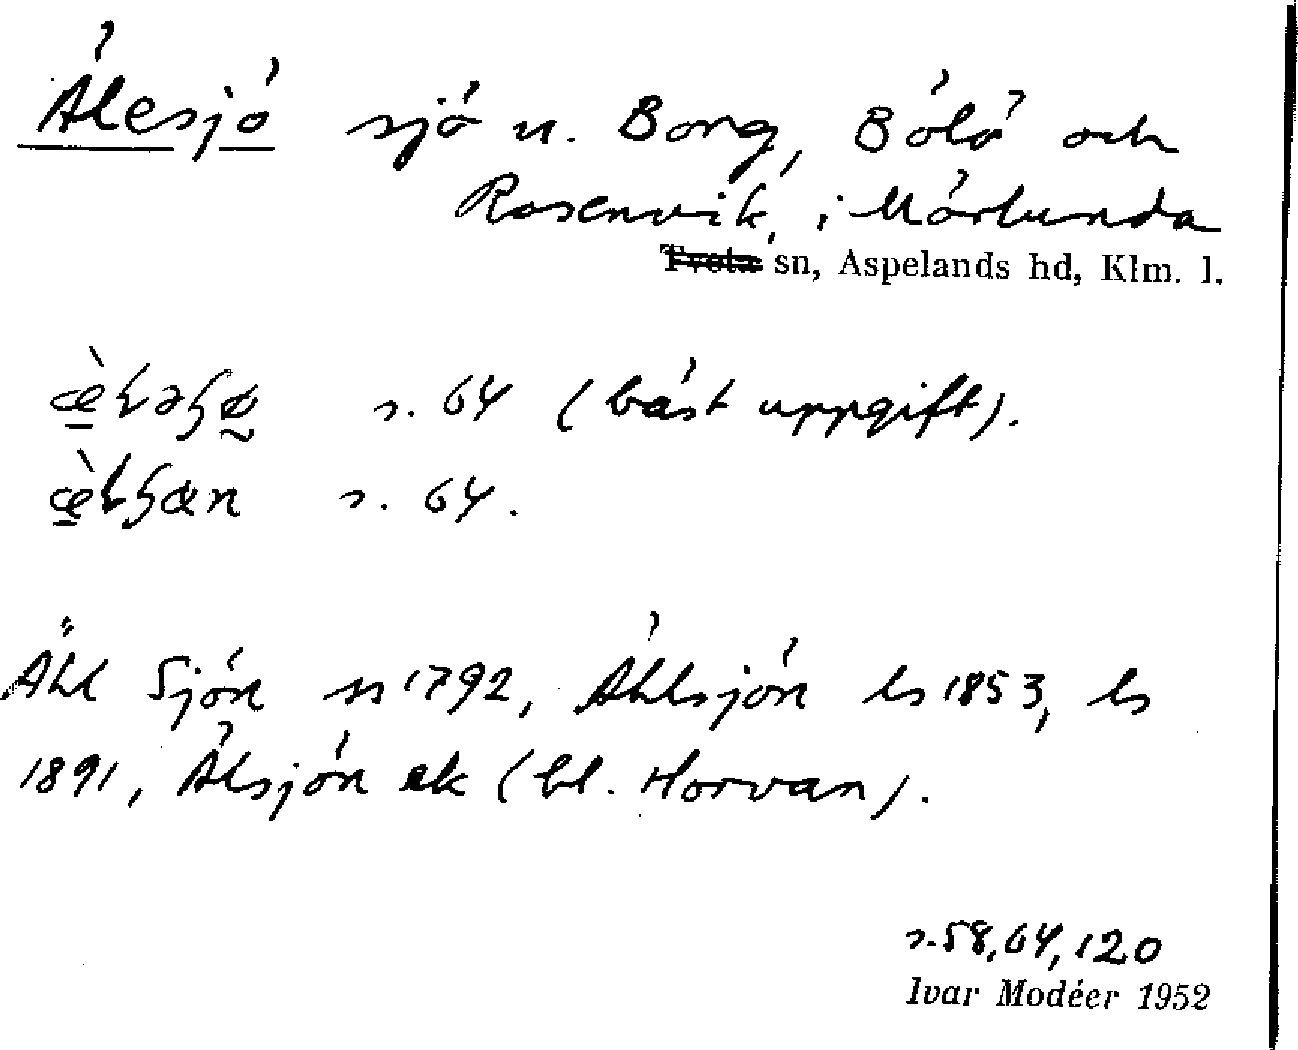 Älesjö sjö u. Borg, Bölö och
Rosenvik, i Mörlunda
Tveta sn, Aspelands hd, Klm. l.
s. 64 (bäst uppgift).
s. 64.
Ähl Sjön ss 1792, Ählsjön ls 1853, ls
1891, Älsjön ek (bl. Horvan).
s. 58, 64, 120
Ivar Modéer 1952